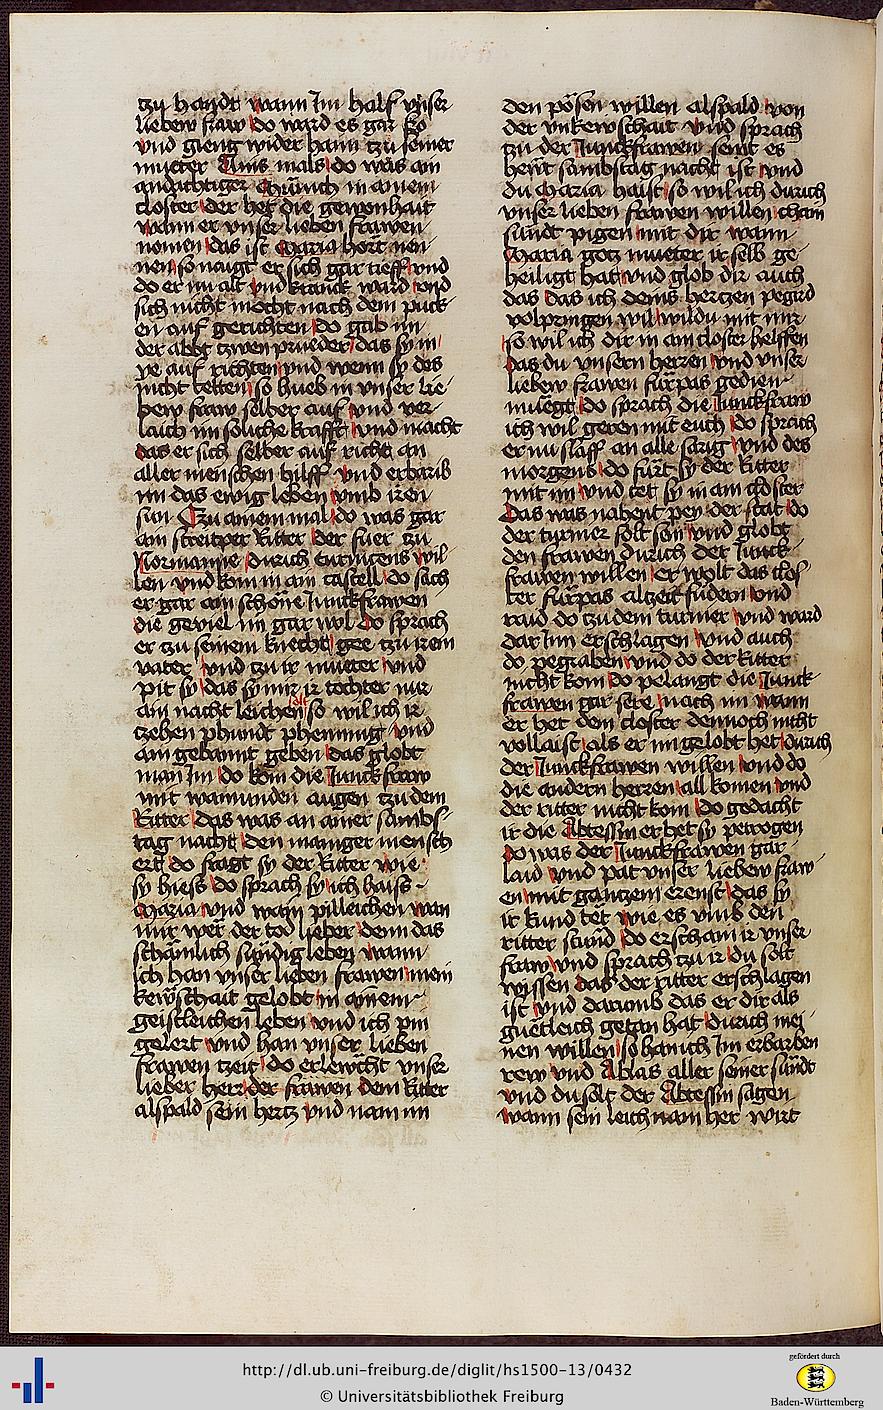 tzu handt wann Im half vnser
liebew fraw do ward es gar fro
vnd gieng wider haim tzu seiner
mueter Ains mals do was ain
andachtiger Münich in ainem
closter der het die gewonhait
wann er vnser lieben frawen
nomen das ist Maria hort nen
nen so naigt er sich gar tieff vnd
do er nu alt vnd kranck ward vnd
sich nicht mocht nach dem puck
en auf gerichten do gab im
der abbt tzwen prueder das sy in
ye auf richten vnd wenn sy des
nicht teten so hueb in vnser lie
bew fraw selber auf vnd ver
laich im soliche krafft vnd macht
das er sich selber auf richt an
aller menschen hilff vnd erbarib
im das ewig leben vmb iren
sun Tzu ainem mal do was gar
ain streitper Ritter der fuer tzu
Normannie durich turnirens wil
len vnd kom in ain castell do sach
er gar ain schone Junckfrawen
die geviel im gar wol do sprach
er tzu seinem knecht gee tzu irem
vater vnd tzu ir mueter vnd
pit sy das sy mir ir tochter nur
ain nacht leichen so wil ich ir
tzehen phundt phenning vnd
ain gebannt geben das globt
man Im do kom die Junckfraw
mit wainunden augen tzu dem
Ritter das was an ainer sambs
tag nacht den maniger mensch
ert do fragt sy der Ritter wie
sy hiess do sprach sy ich haiss
Maria vnd wain pilleichen wan
mir wer der tod lieber denn das
schamlich sündig leben wann
Ich han vnser lieben frawen mein
kewschait gelobt in ainem
geistleichen leben vnd ich pin
gelert vnd han vnser lieben
frawen tzeit do erlewcht vnser
lieber herr der frawen dem Ritter
alspald sein hertz vnd nam im
den pösen willen alspald von
der vnkewschait vnd sprach
tzu der Junckfrawen seint es
hewt sambstag nacht ist vnd
du Maria haist so wil ich durich
vnser lieben frawen willen chain
sündt pigen mit dir wann
Maria gotz mueter ir selb ge
heiligt hat vnd glob dir auch
das das ich deins hertzen pegird
volpringen wil wildu mit mir
so wil ich dir in ain closter helffen
das du vnsern herren vnd vnser
liebew frawen fürpas gedien
muegt do sprach die Junckfraw
ich wil geren mit euch do sprach
er nu slaff an alle sarig vnd des
morgens do fürt sy der Ritter
mit im vnd tet sy in ain closter
Das was nahent pey der stat do
der turnier solt sein vnd globt
den frawen durich der Junck
frawen willen er wolt das clos
ter fürpas altzeit füdern vnd
raid do tzu dem turnier vnd ward
dar Inn erschlagen vnd auch
do pegraben vnd do der Ritter
nicht kom do pelangt die Junck
frawen gar sere nach im wann
er het dem closter dennoch nicht
vollaist als er im gelobt het durich
der Junckfrawen willen vnd do
die andern herren all komen vnd
der ritter nicht kom do gedacht
ir die Abtessin er het sy petrogen
Do was der Junckfrawen gar
laid vnd pat vnser liebew fraw
en mit gantzem erenst das sy
ir kund tet wie es vmb den
ritter stund do erschain ir vnser
fraw vnd sprach tzu ir du solt
wissen das der ritter erschlagen
ist vnd darumb das er dir als
guetleich getan hat durich mei
nen willen so han ich Im erbarben
rew vnd Ablas aller seiner sündt
vnd du solt der Abtessin sagen
wann sein leichnam her wirt
http://dl.ub.uni-freiburg.de/diglit/hs1500-13/0432
© Universitätsbibliothek Freiburg
gefördert durch
Baden-Württemberg